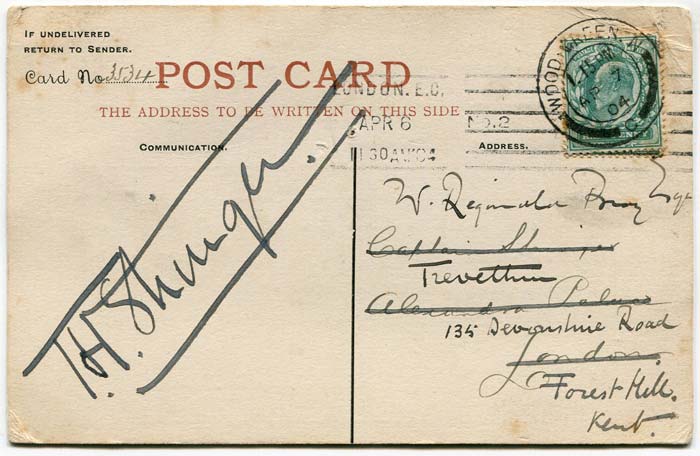 IF UNDELIVERED
RETURN TO SENDER.
Card No 3534
POST CARD
THE ADDRESS TO BE WRITTEN ON THIS SIDE
COMMUNICATION.
ADDRESS.
LONDON. E.C.
APR 6 No. 2
11 30 AM 04
WOOD GREEN
AP 7
04
W. Reginald Bray Esqr
Captain
Trevethin
Alexandra Palace
135 Devonshire Road
London.
Forest Hill.
Kent.